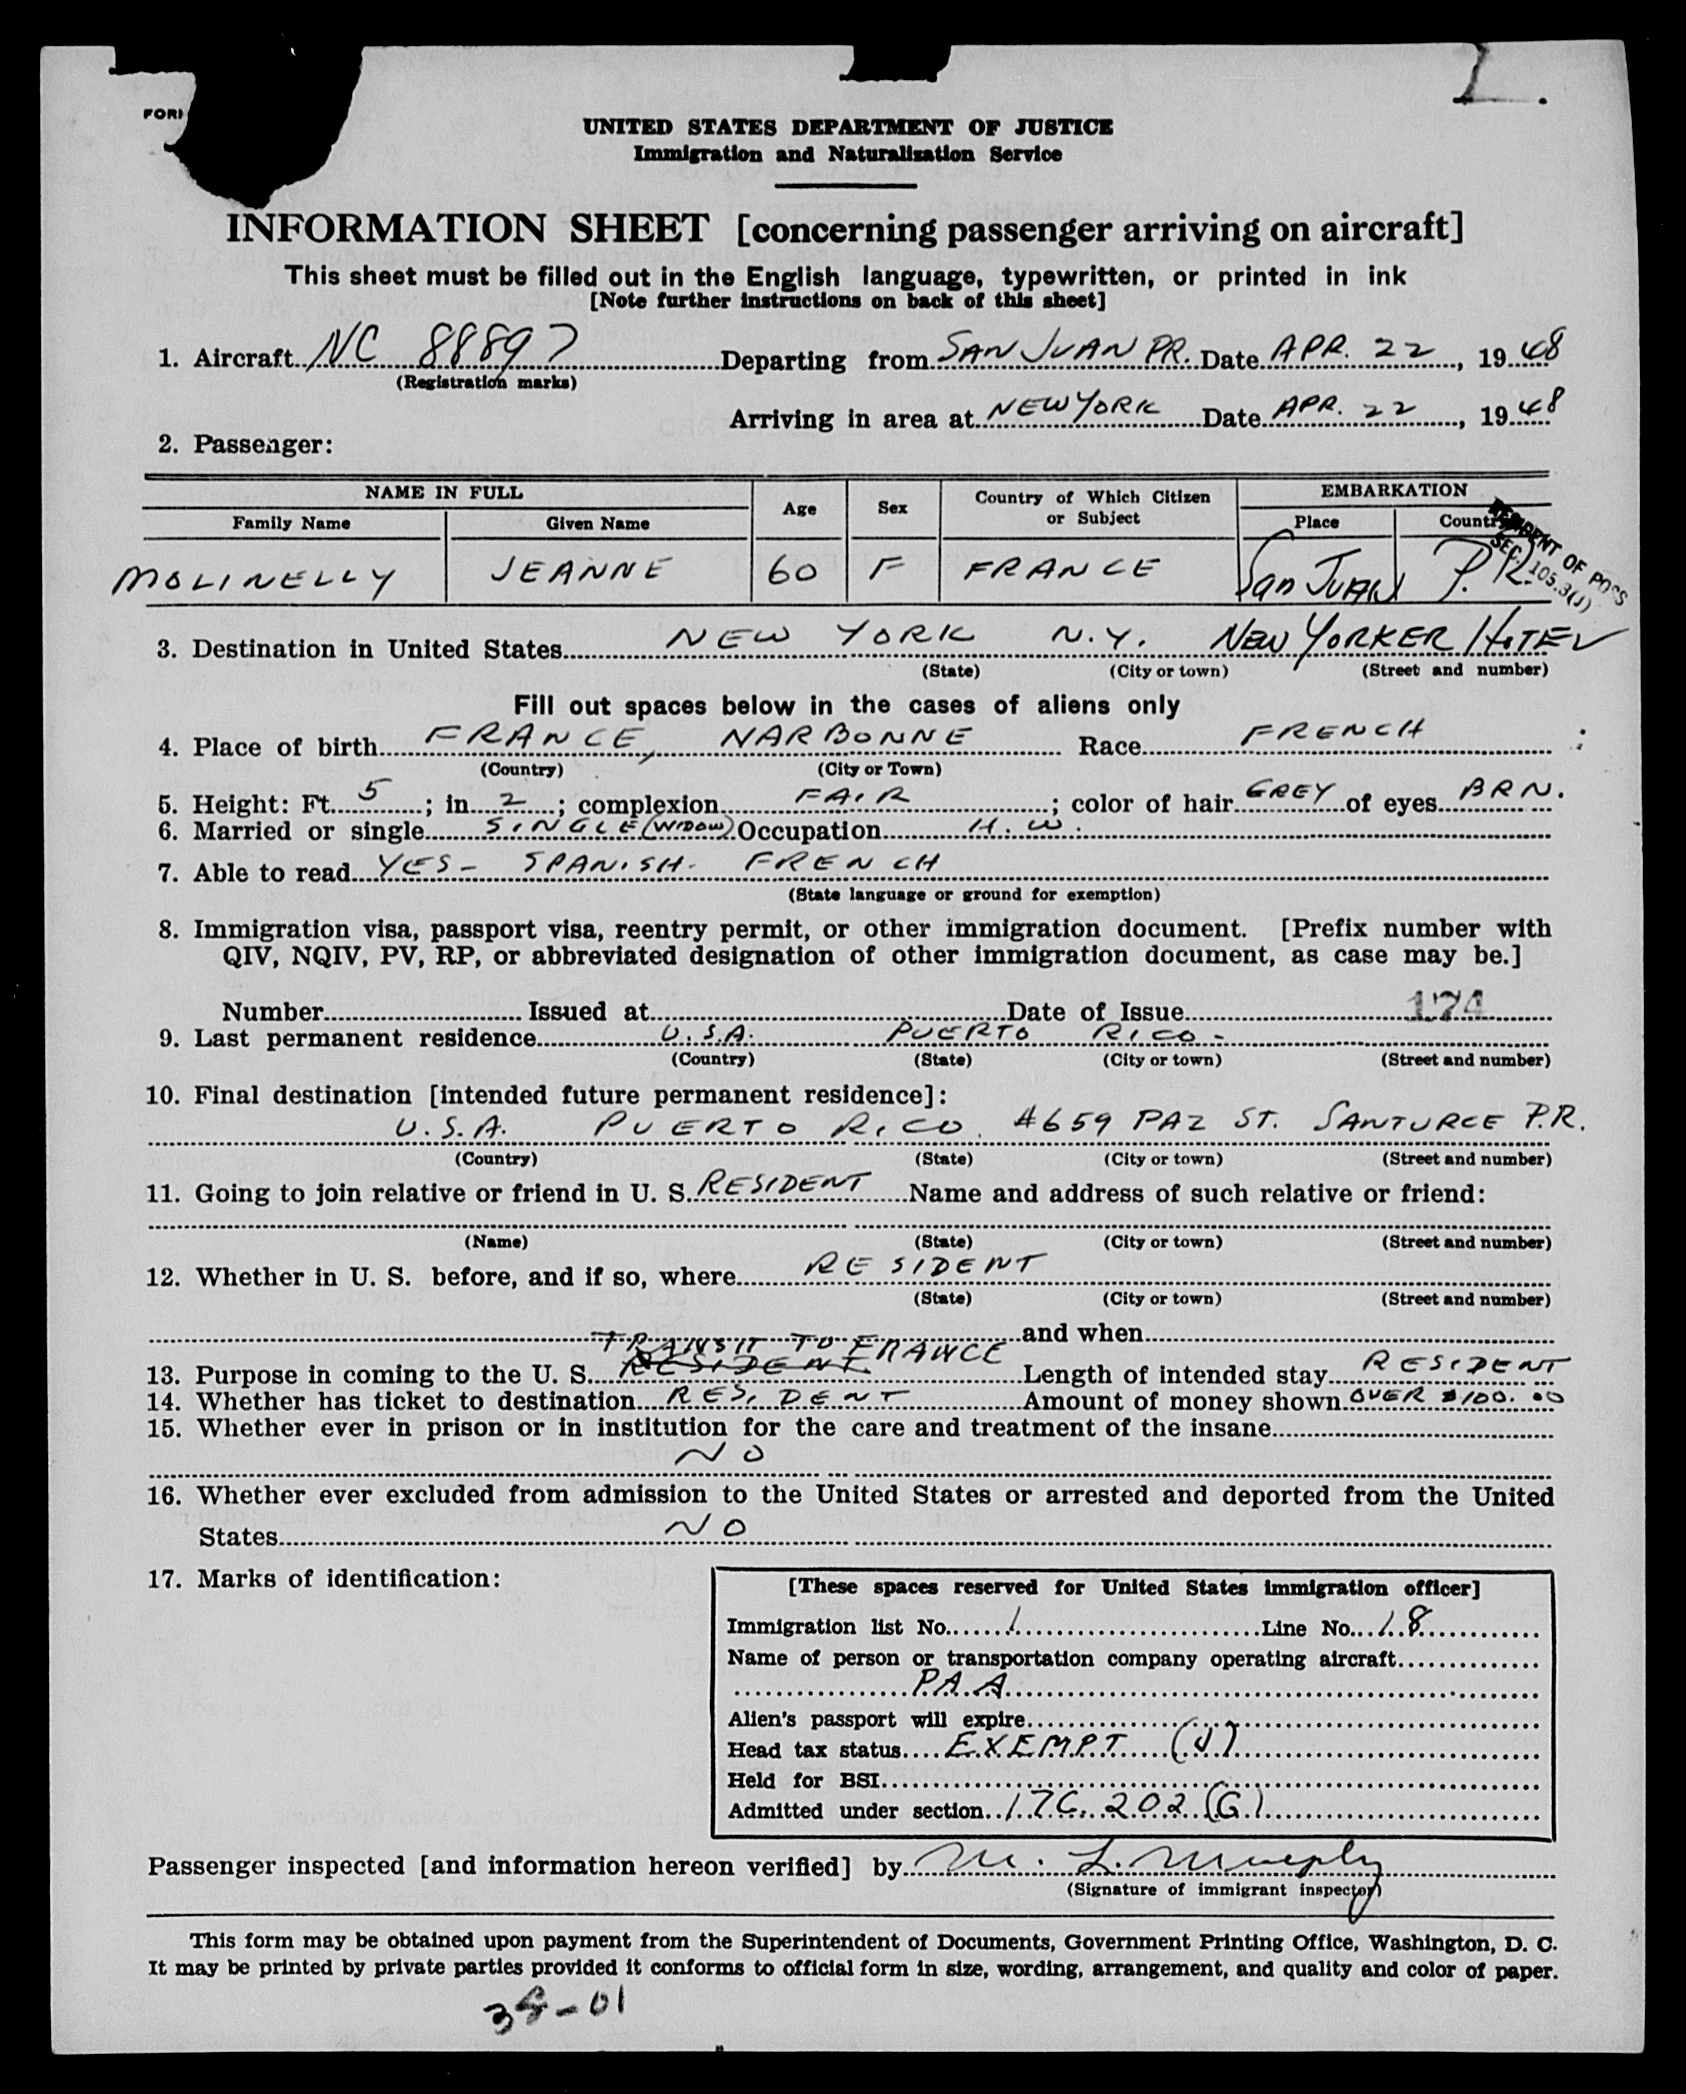 I.
FORM
UNITED STATES DEPARTMENT OF JUSTICE
Immigration and Naturalization Service
INFORMATION SHEET [concerning passenger arriving on aircraft]
This sheet must be filled out in the English language, typewritten, or printed in ink
[Note further instructions on back of this sheet]
1. Aircraft NC 88897 Departing from SAN JUAN PR. Date APR. 22, 1948
(Registration marks)
Arriving in area at NEW YORK Date APR. 22, 1948
2. Passenger:
NAME IN FULL Age Sex Country of Which Citizen or Subject EMBARKATION
Family Name Given Name Place Country
RESIDENT OF POSS
SEC. 105.3(J)
MOLINELLY JEANNE 60 F FRANCE San JUAN P.R.
3. Destination in United States NEW YORK N.Y. NEW YORKER HOTEL
(State) (City or town) (Street and number)
Fill out spaces below in the cases of aliens only
4. Place of birth FRANCE, NARBONNE Race FRENCH
(Country) (City or Town)
5. Height: Ft. 5; in. 2; complexion FAIR; color of hair GREY of eyes BRN.
6. Married or single SINGLE (WIDOW) Occupation H.W.
7. Able to read YES - SPANISH - FRENCH
(State language or ground for exemption)
8. Immigration visa, passport visa, reentry permit, or other immigration document. [Prefix number with
QIV, NQIV, PV, RP, or abbreviated designation of other immigration document, as case may be.]
Number Issued at Date of Issue 174
9. Last permanent residence U.S.A. PUERTO RICO -
(Country) (State) (City or town) (Street and number)
10. Final destination [intended future permanent residence]:
U.S.A. PUERTO RICO. #659 PAZ ST. SANTURCE P.R.
(Country) (State) (City or town) (Street and number)
11. Going to join relative or friend in U. S. RESIDENT Name and address of such relative or friend:
(Name) (State) (City or town) (Street and number)
12. Whether in U. S. before, and if so, where RESIDENT
(State) (City or town) (Street and number)
and when
TRANSIT TO FRANCE
13. Purpose in coming to the U. S. RESIDENT Length of intended stay RESIDENT
14. Whether has ticket to destination RESIDENT Amount of money shown OVER $100.00
15. Whether ever in prison or in institution for the care and treatment of the insane
NO
16. Whether ever excluded from admission to the United States or arrested and deported from the United
States NO
17. Marks of identification:
[These spaces reserved for United States immigration officer]
Immigration list No. 1 Line No. 18
Name of person or transportation company operating aircraft
P.A.A.
Alien's passport will expire
Head tax status EXEMPT (J)
Held for BSI
Admitted under section 176.202(G)
Passenger inspected [and information hereon verified] by M. L. Murphy
(Signature of immigrant inspector)
This form may be obtained upon payment from the Superintendent of Documents, Government Printing Office, Washington, D. C.
It may be printed by private parties provided it conforms to official form in size, wording, arrangement, and quality and color of paper.
38-01